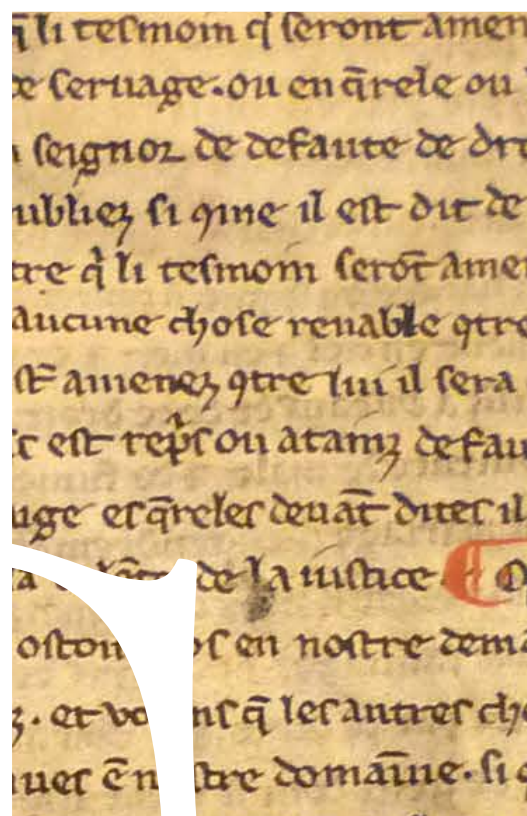 q̄ li tesmoin q̍ seront amen
de seruage. ou en q̄rele ou
seignor de defaute de dre
ubliez si ꝯme il est dit de
tre q̍ li tesmoin serōt amen
aucune chose renable ꝯtre
st̄ amenez ꝯtre lui il sera
c est rep̍s ou atainz defau
uge es q̄reles deuāt dites il
de la iustice
oston os en nostre dema
z. et vo ns q̄ les autres ch
ues en nostre domaīne. si